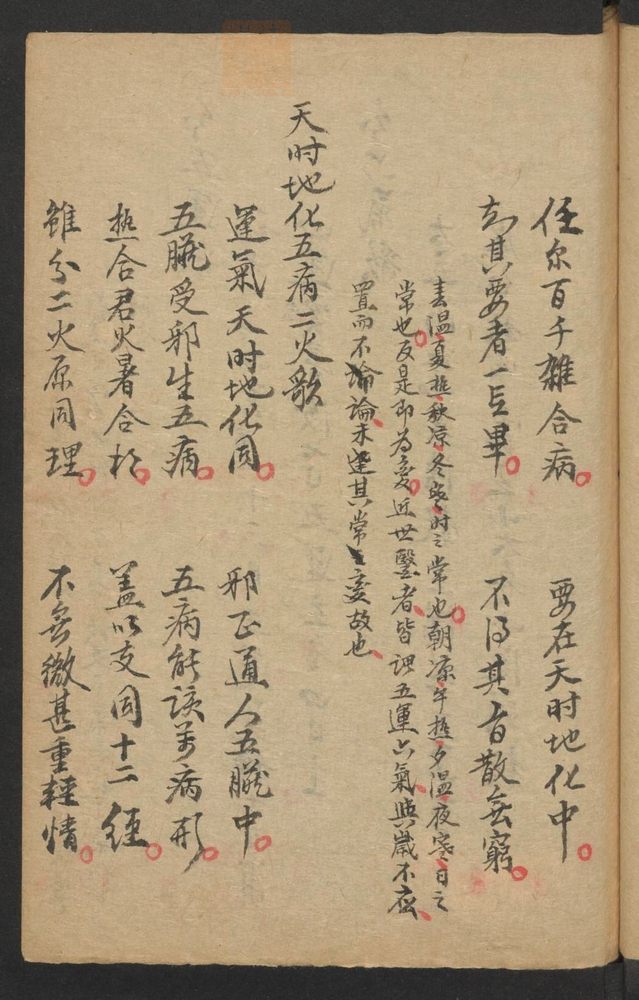 任尔百千雜合病。 要在天时地化中。
知其要者一言畢。 不得其旨散無窮。
春温夏热秋凉冬寒时之常也。朝凉午热夕温夜寒日之
常也。反是即为变。近世醫者、皆謂五運六氣、與歲不应、
置而不論、未達其常變故也、
天时地化五病二火歌
運氣天时地化同。 邪正通人五臟中。
五臟受邪生五病。 五病能該万病形。
热合君火暑合相。 盖以支同十二经。
雖分二火原同理。 不無微甚重輕情。